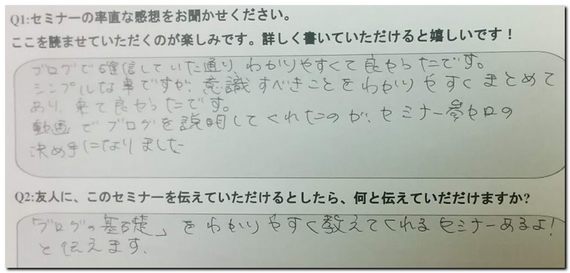 Q1:セミナーの率直な感想をお聞かせください。
ここを読ませていただくのが楽しみです。詳しく書いていただけると嬉しいです！
ブログで確信していた通り、わかりやすくて良かったです。
シンプルな事ですが、意識すべきことをわかりやすくまとめて
あり、来て良かったです。
動画でブログを説明してくれたのが、セミナー参加の
決め手になりました
Q2:友人に、このセミナーを伝えていただけるとしたら、何と伝えていだだけますか?
「ブログの基礎」をわかりやすく教えてくれるセミナーあるよ!
と伝えます.